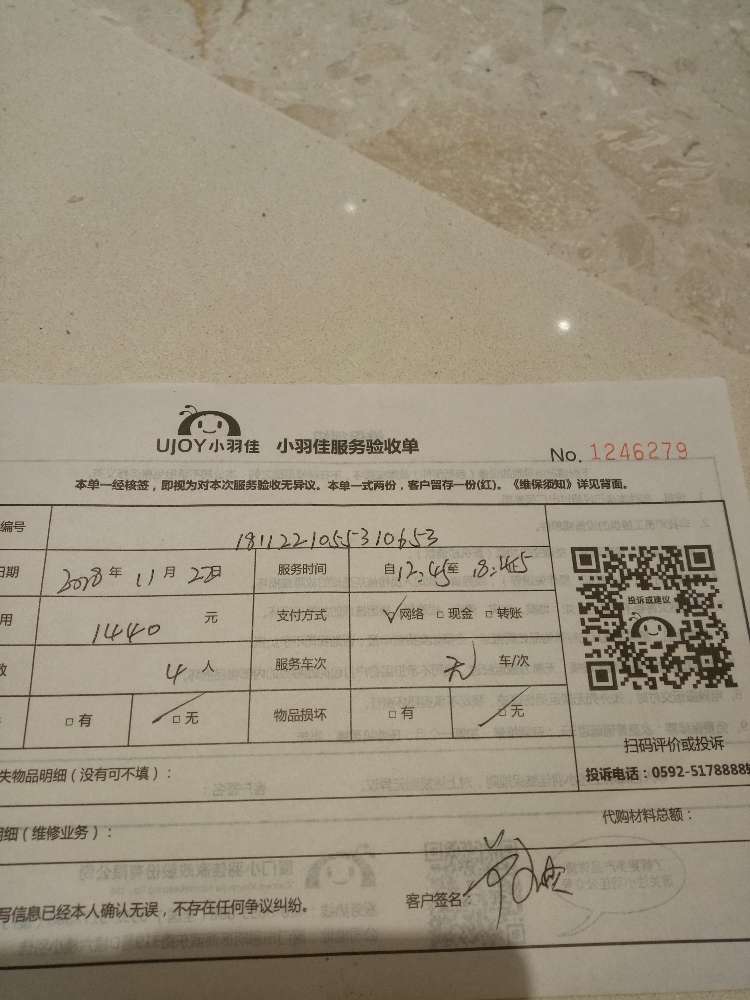 UJOY小羽佳 小羽佳服务验收单 No. 1246279
本单一经核签，即视为对本次服务验收无异议。本单一式两份，客户留存一份(红)。《维保须知》详见背面。
编号 181122105531 0653
日期 2018 年 11 月 22日 服务时间 自12:45至 18:45
用 1440 元 支付方式 √网络 □ 现金 □ 转账
数 4 人 服务车次 无 车/次
□ 有 □ 无 物品损坏 □ 有 □ 无
投诉或建议
扫码评价或投诉
投诉电话：0592-5178888
失物品明细（没有可不填）：
代购材料总额：
明细（维修业务）：
写信息已经本人确认无误，不存在任何争议纠纷。 客户签名：